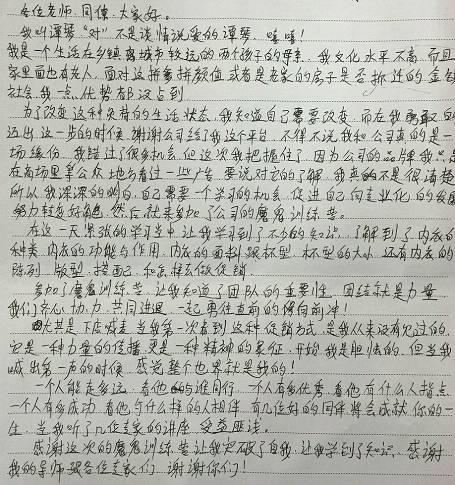 各位老师、同僚，大家好。
我叫谭琴"对"不是谈情说爱的谭琴，嘻嘻！
我是一个生活在乡镇离城市较远的两个孩子的母亲，我文化水平不高，而且
家里面也有老人，面对这拼爹拼颜值或者是老家的房子是否拆迁的金钱
社会，我一点优势都没占到
为了改变这种负荷的生活状态，我知道自己需要改变，而在我勇敢的
迈出这一步的时候，谢谢公司给了我这个平台，不得不说我和公司真的是一
场缘份，我错过了很多机会，但这次我把握住了，因为公司的"品牌我"是
在商场里拿公众地方看过一些广告，要说对它的了解，我真的不是很清楚
所以我深深的明白，自己需要一个学习的机会，促进自己向专业化的发展
努力转变好角色，然后就来参加了公司的魔鬼训练营。
在这一天紧张的学习当中，让我学习到了不少的知识，了解到了内衣的
种类，内衣的功能与作用，内衣的面料跟杯型，杯型的大小，还有内衣的
陈列，版型，搭配，和怎样去做促销
参加了魔鬼训练营，让我知道了团队的重要性，团结就是力量
我们齐心协力，共同进退，一起勇往直前的傍向前冲！
尤其是下店喊麦，当我第一次看到这种促销方式，是我从来没有见过的，
它是一种力量的传播，更是一种精神的象征，开始我是胆怯的，但当我
喊出第一声的时候，感觉整个世界就是我的！
一个人能走多远，看他与谁同行，一个人有多优秀，看他有什么人指点，
一个人有多成功，看他与什么样的人相伴，有几位好的同伴将会成就你的一
生，当我听了几位专家的讲座，受益匪浅。
感谢这次的魔鬼训练营让我突破了自我，让我学到了知识，感谢
我的导师跟各位专家们，谢谢你们！